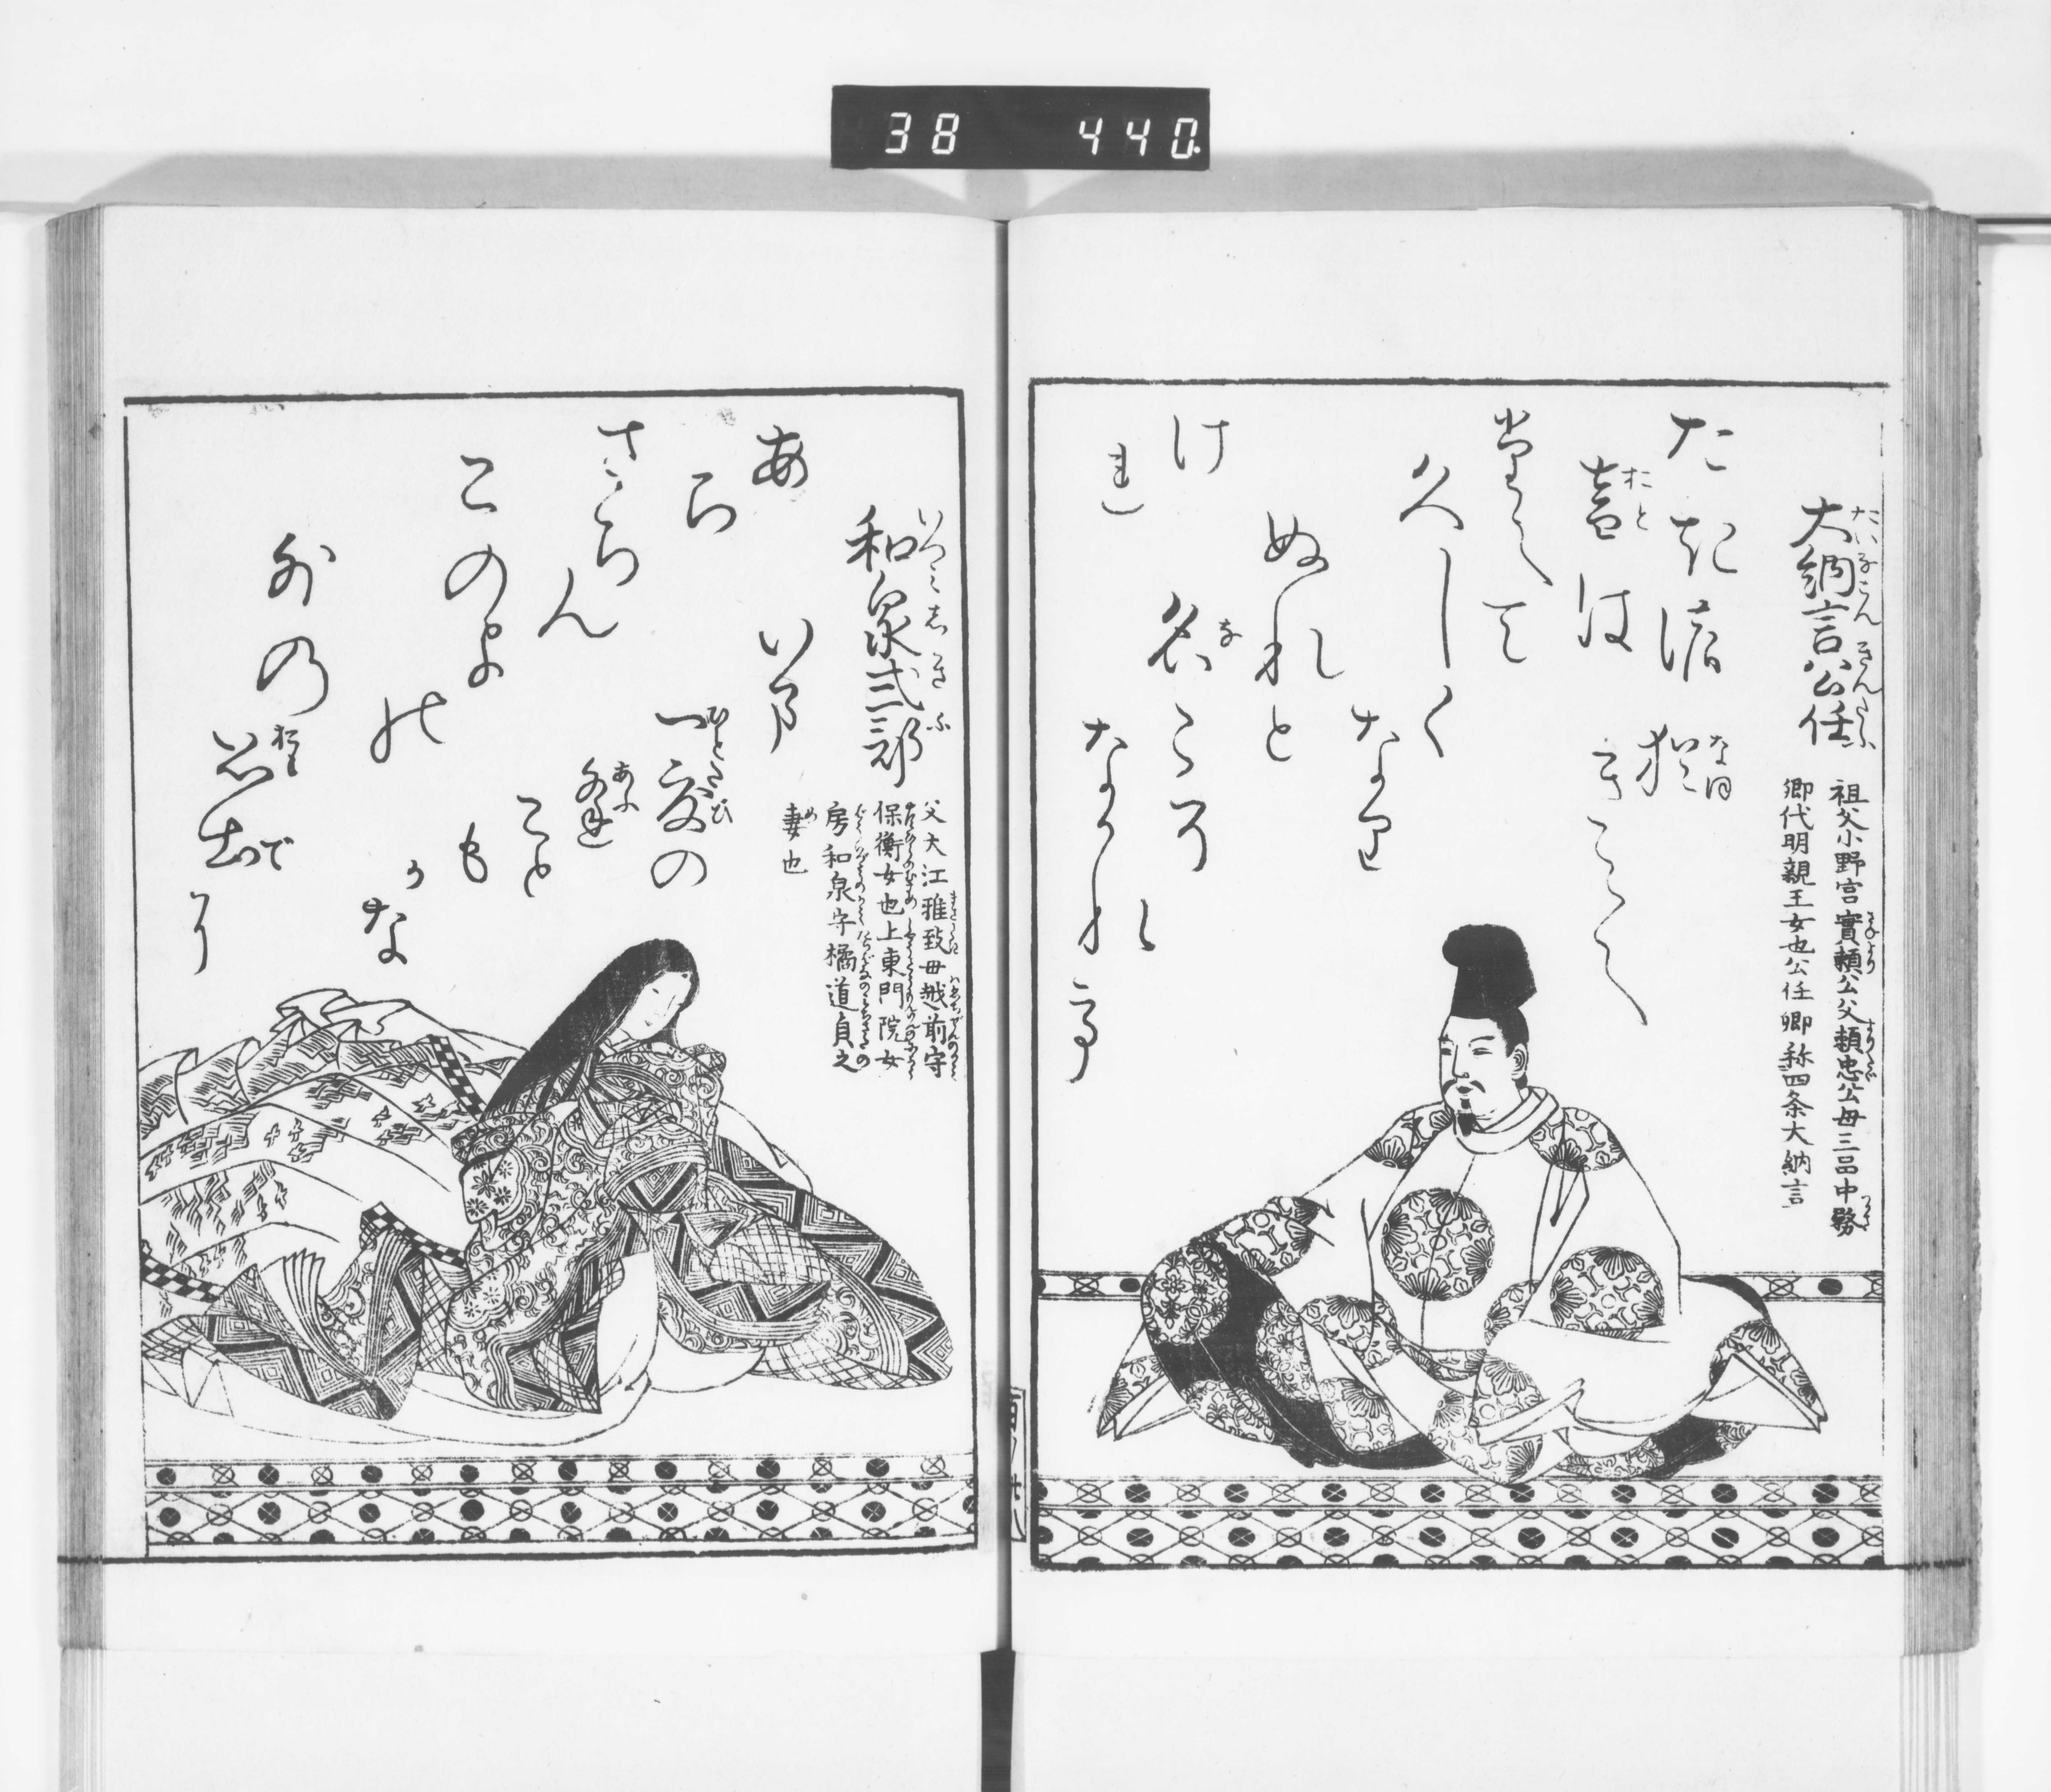 38 440
大納言公任
祖父小野宮實頼公父頼忠公母三品中務
卿代明親王女也公任卿称四条大納言
たきの
音は
堂えて
久しく
なり
ぬれと
名こそ
なかれて
猶
きこえ
け
れ
和泉式部
父大江雅致母越前守
保衡女也上東門院女
房和泉守橘道貞之
妻也
あ
ら
さらん
このよの
外の
思
出に
いま
一度の
逢
こと
も
かな